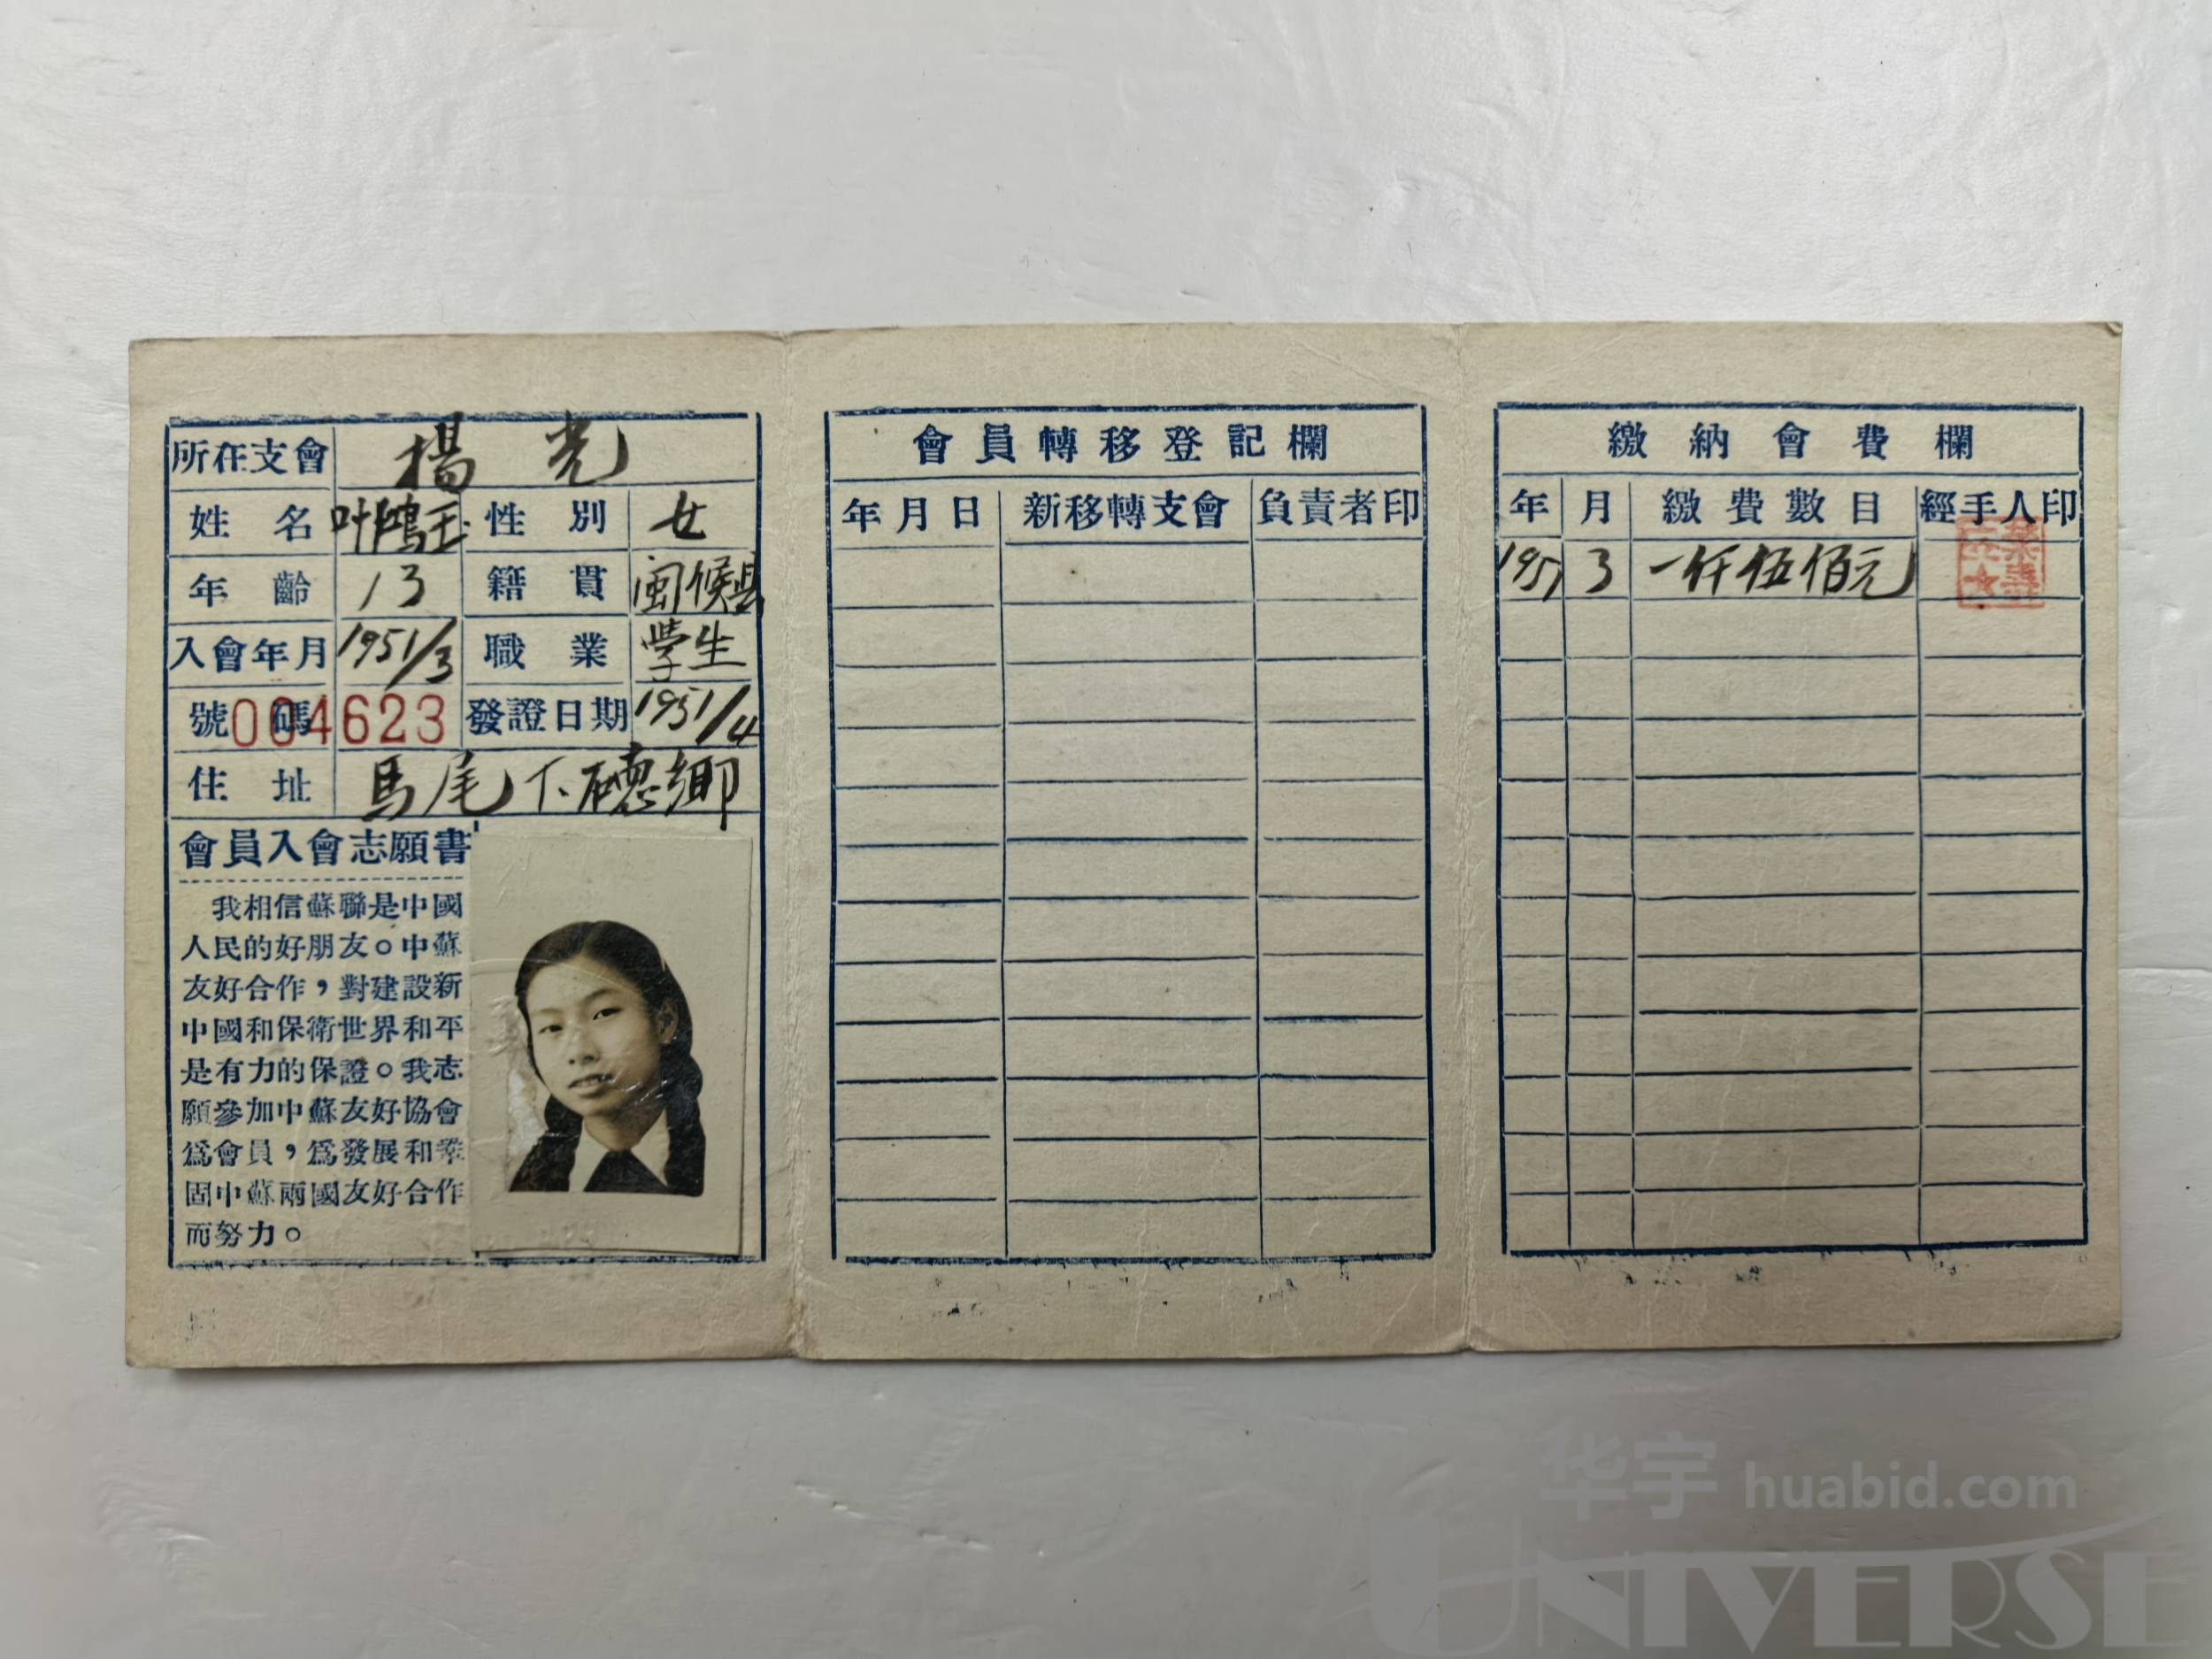 所在支會 楊光
姓名 叶鴻玉 性別 女
年齡 13 籍貫 閩候县
入會年月 1951/3 職業 学生
號碼 004623 發證日期 1951/4
住址 馬尾下德鄉
會員入會志願書
我相信蘇聯是中國
人民的好朋友。中蘇
友好合作，對建設新
中國和保衛世界和平
是有力的保證。我志
願參加中蘇友好協會
爲會員，爲發展和鞏
固中蘇兩國友好合作
而努力。
會員轉移登記欄
年月日 新移轉支會 負責者印
繳納會費欄
年 月 繳費數目 經手人印
1951 3 一仟伍佰元
华宇 huabid.com
UNIVERSE